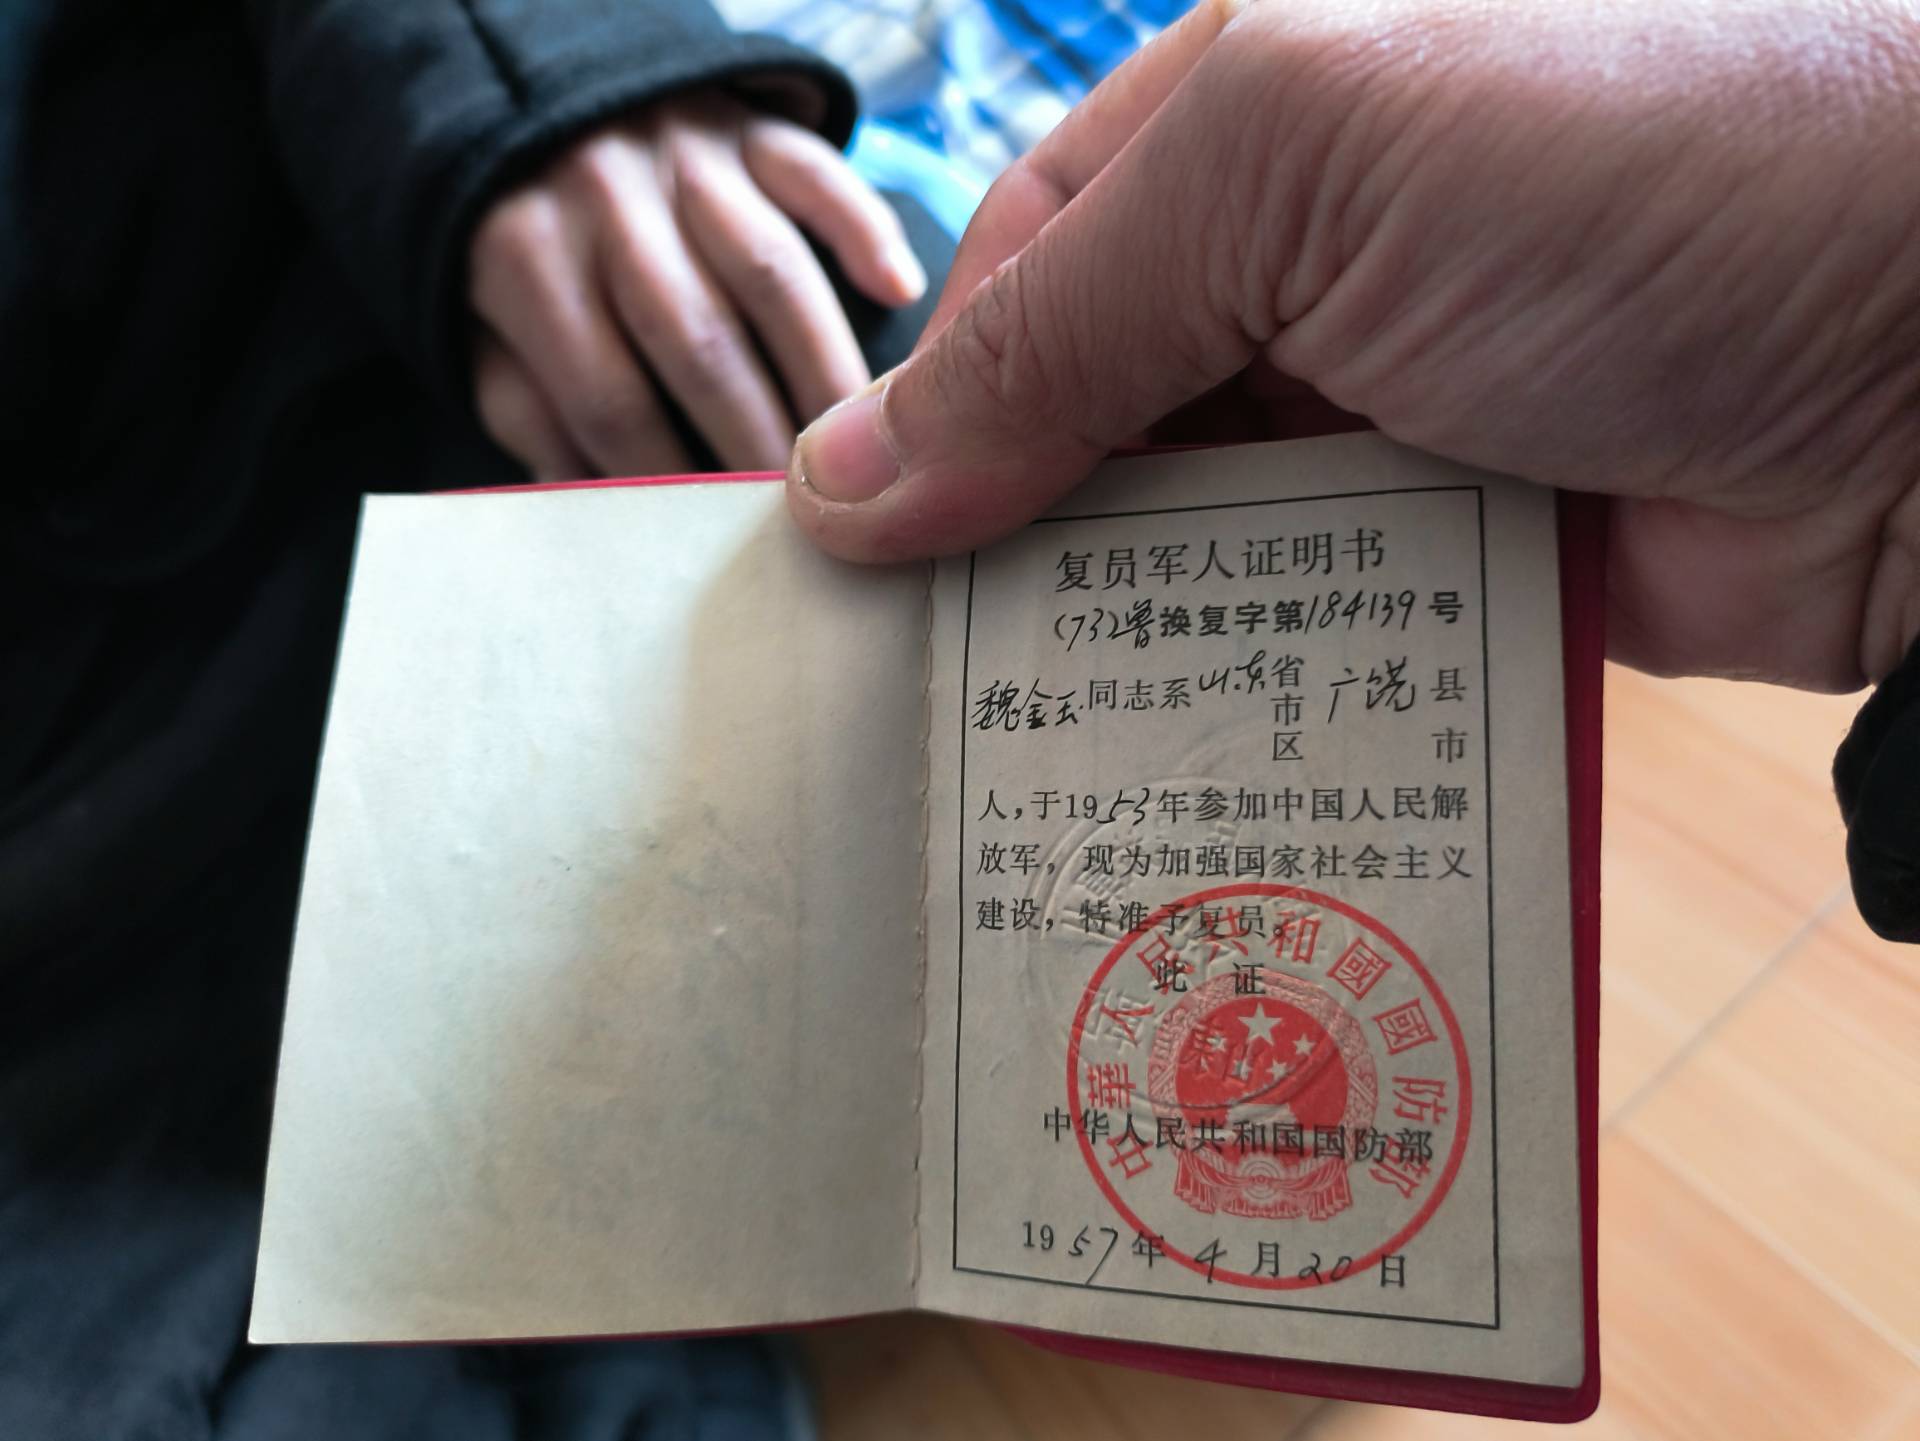 复员军人证明书
(73)鲁换复字第184139号
魏金玉同志系山东省市区广饶县市
人,于1953年参加中国人民解
放军,现为加强国家社会主义
建设,特准予复员。
此证
中华人民共和国国防部
中华人民共和國國防部
1957年4月20日